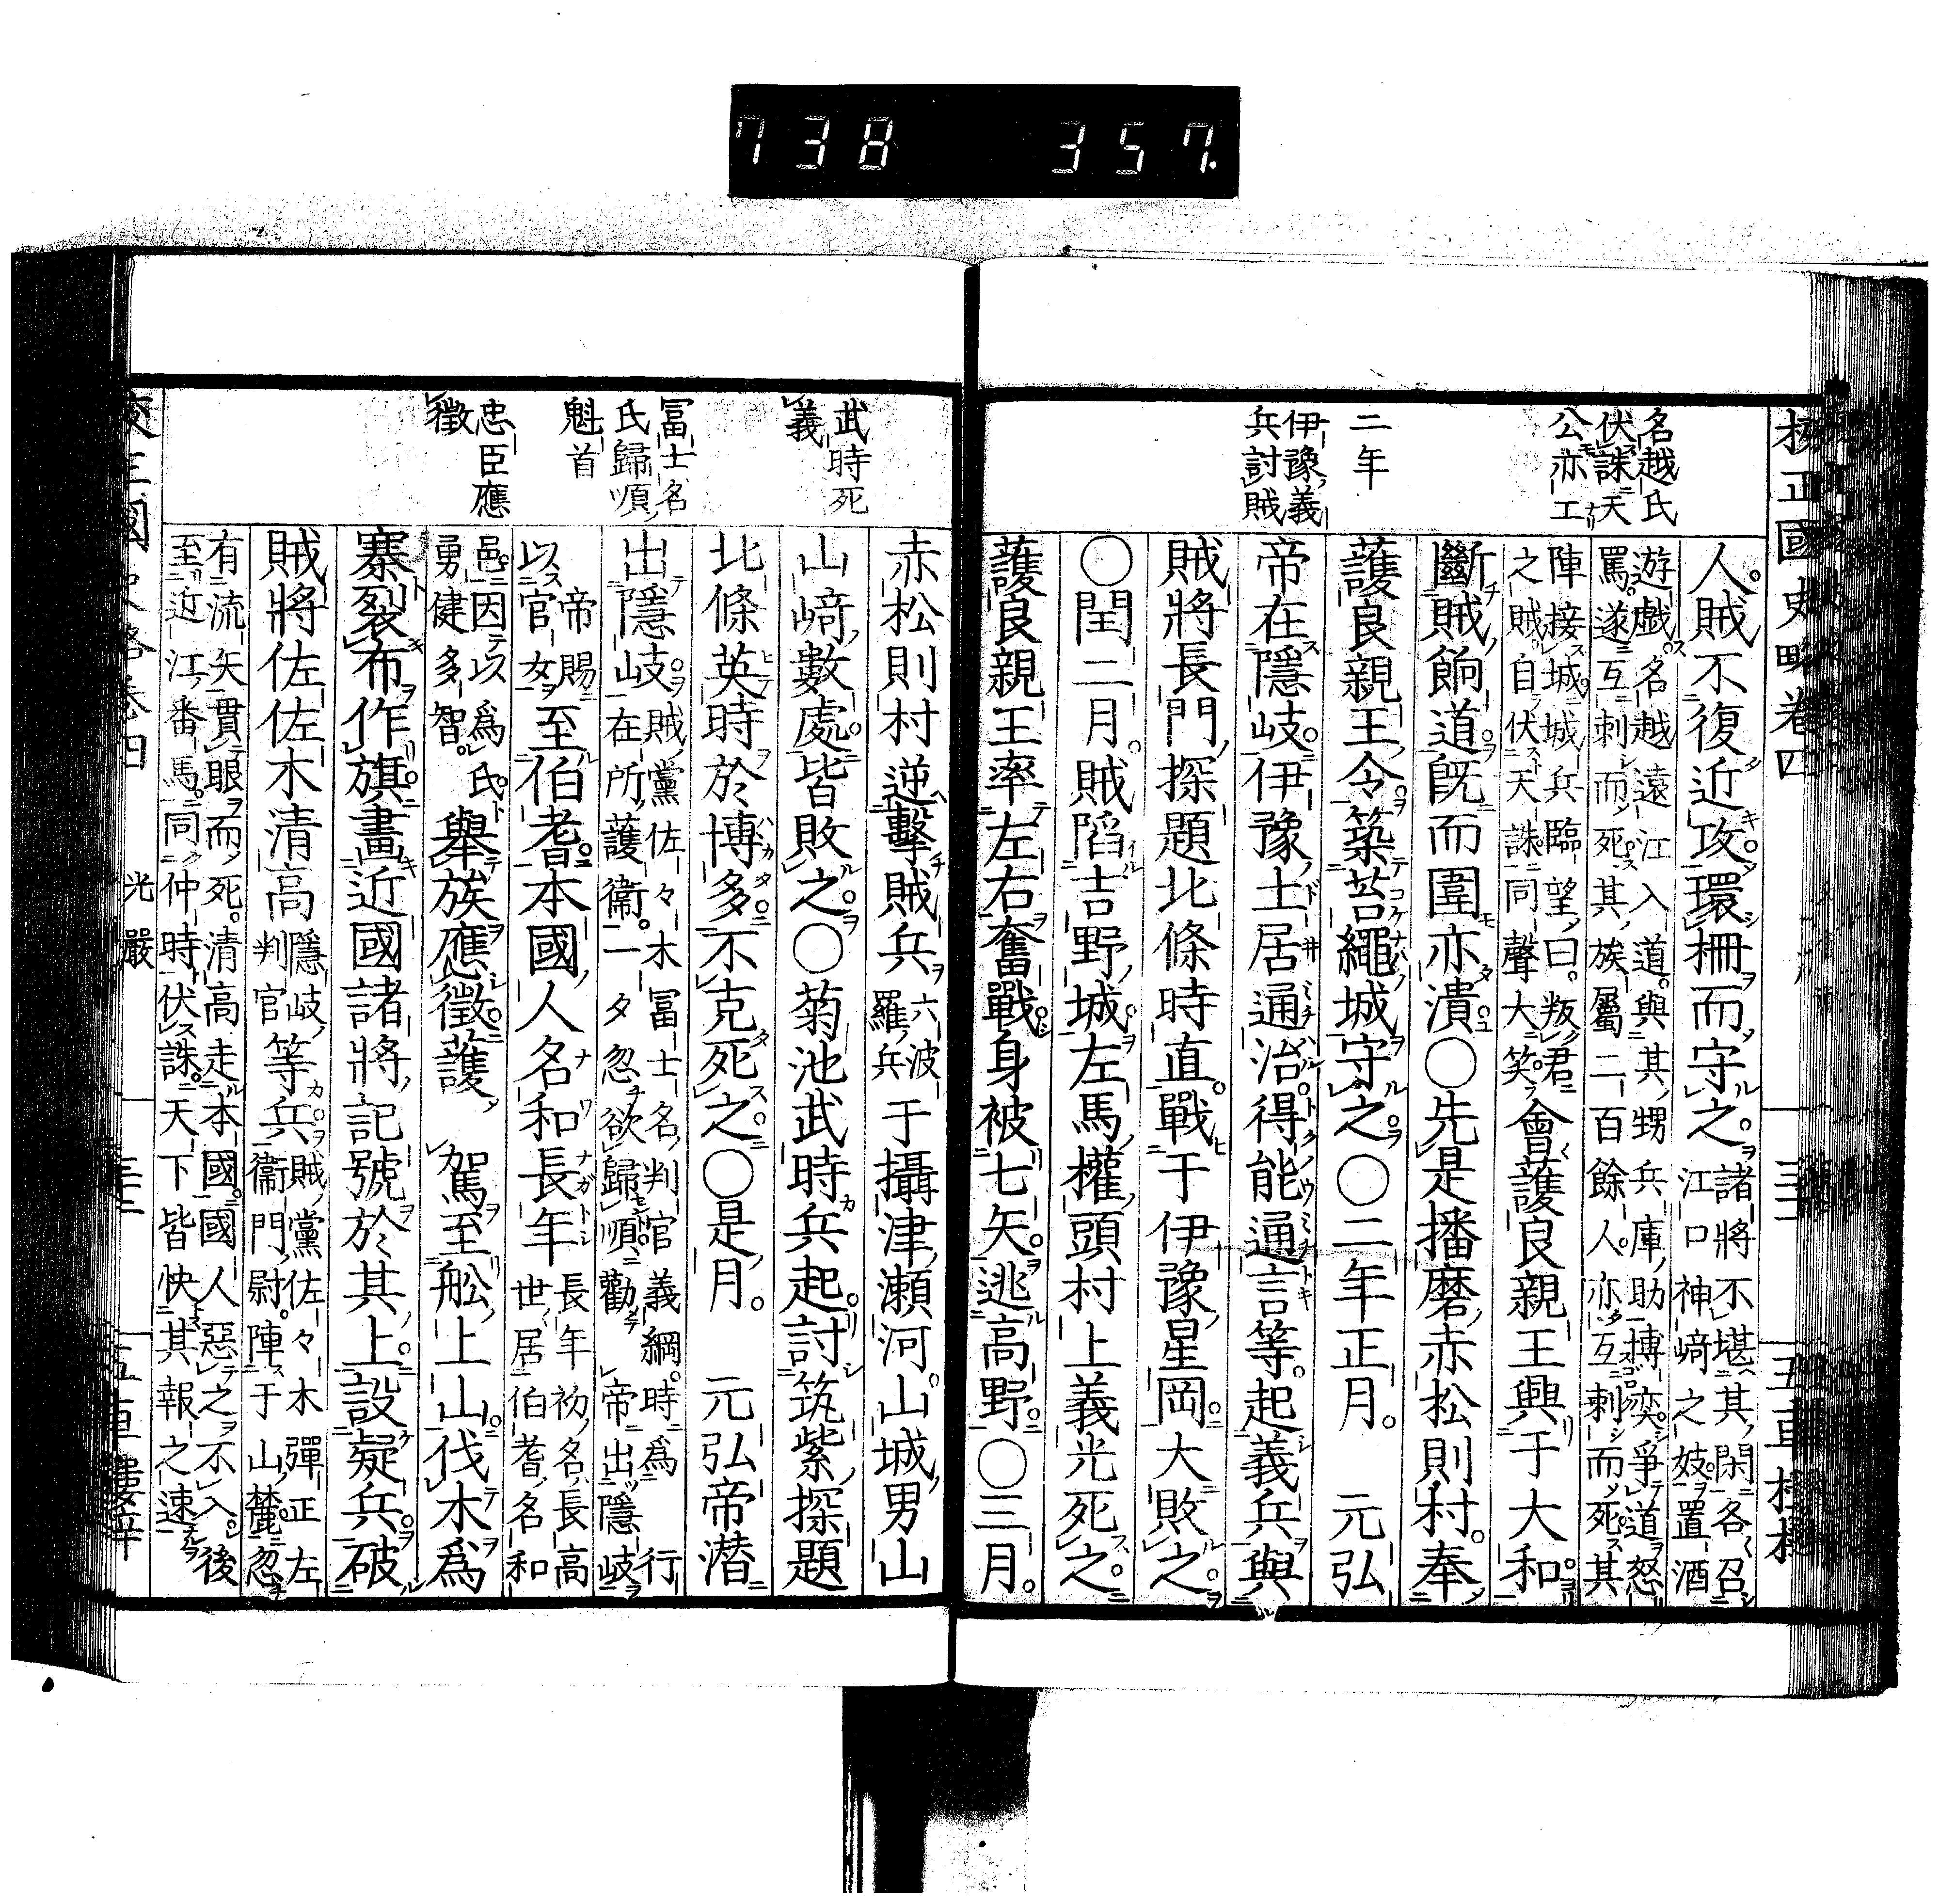 738 357.
校正國史畧卷四
三十二
名越氏
伏誅天
公亦工
二年
伊豫義
兵討賊
人賊不復近攻環柵而守之諸將不堪其閑各召
江口神﨑之妓置酒
游戲名越遠江入道與其甥兵庫助博奕爭道怒
罵遂互刺而死其族屬二百餘人亦互刺而死其
陣接城城兵臨望曰叛君
之賊自伏天誅同聲大笑會護良親王興于大和
斷賊餉道既而圍亦潰〇先是播磨赤松則村奉
護良親王令築苔繩城守之〇二年正月 元弘
帝在隱岐伊豫土居通治得能通言等起義兵與
賊將長門探題北條時直戰于伊豫星岡大敗之
〇閏二月賊陷吉野城左馬權頭村上義光死之
護良親王率左右奮戰身被七矢逃高野〇三月
武時死
義
冨士名
氏歸順
魁首
忠臣應
徵
赤松則村逆擊賊兵六波
羅兵于攝津瀬河山城男山
山﨑數處皆敗之〇菊池武時兵起討筑紫探題
北條英時於博多不克死之〇是月 元弘帝潜
出隱岐賊黨佐々木冨士名判官義綱時爲 行
在所護衞一夕忽欲歸順勸 帝出隱岐
帝賜
以官女至伯耆本國人名和長年長年初名長高
世居伯耆名和
邑因以爲氏
勇健多智擧族應徵護 駕至舩上山伐木爲
寨裂布作旗畫近國諸將記號於其上設疑兵破
賊將佐佐木清高隱岐
判官等兵賊黨佐々木彈正左
衞門尉陣于山麓忽
有流矢貫眼而死清高走本國國人惡之不入後
至近江番馬同仲時伏誅天下皆快其報之速
光嚴